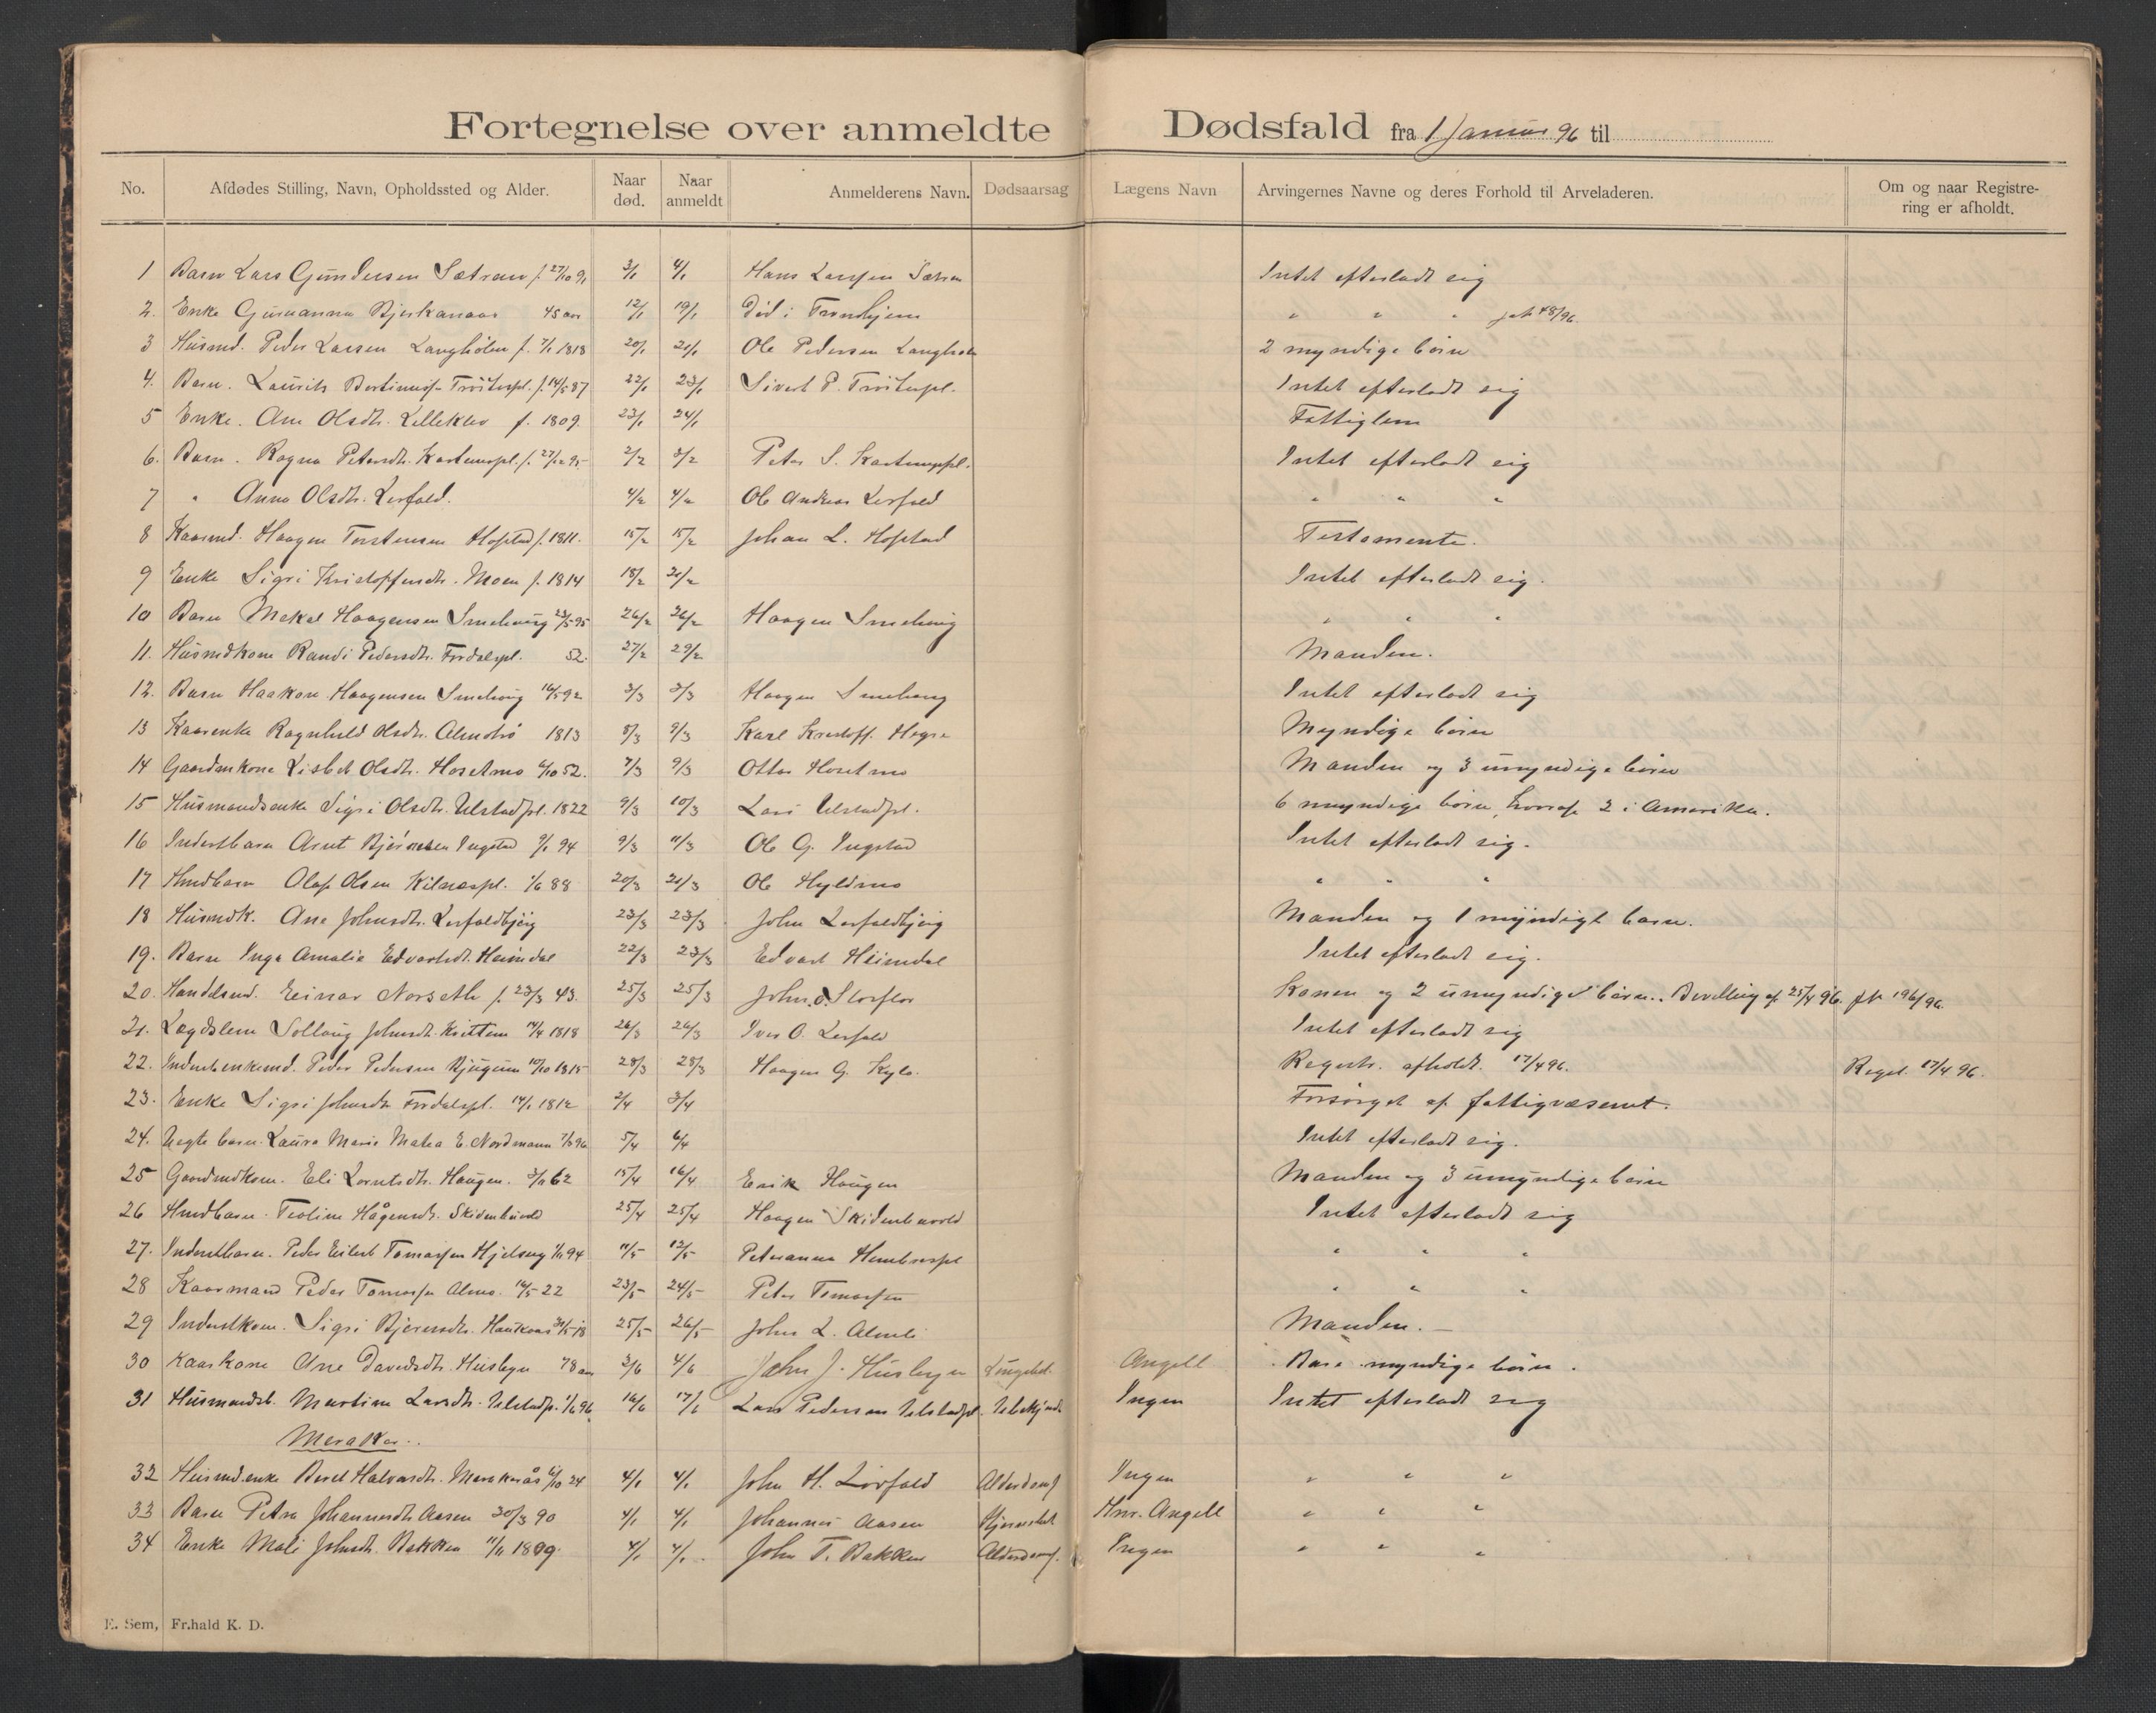 Fortegnelse over anmeldte Dødsfald fra 1 Januar 96 til
No. Afdødes Stilling, Navn, Opholdssted og Alder. Naar død. Naar anmeldt Anmelderens Navn. Dødsaarsag Lægens Navn Arvingernes Navne og deres Forhold til Arveladeren. Om og naar Registrering er afholdt.
1 Barn Lars Gundersen Sætran f. 27/10 91 3/1 4/1 Hans Larsen Sætran Intet efterladt sig
2. Enke Gurianna Bjerkanaas 45 aar 12/1 19/1 Død i Trondhjem " " " 48/96.
3 Husmd. Peder Larsen Langhölen f. 7/1 1818 20/1 21/1 Ole Pedersen 2 myndige börn
4. Barn. Laurits Tröitespl. f. 14/5 87 22/1 23/1 Sivert P. Tröitespl. Intet efterladt sig
5 Enke. Ane Olsdtr. Lilleklev f. 1809. 23/1 24/1 Fattiglem
6. Barn. Ragna Petersdtr. f. 27/12 95 2/2 3/2 Peter S. Intet efterladt sig
7 " Anna Olsdtr. Lerfald. 4/2 4/2 Ole Andreas Lerfald " " "
8 Kaarmd. Haagen Torstensen Hofstad f. 1811. 15/2 15/2 Johan L. Hofstad Testamente.
9 Enke Sigri Kristoffersdtr. Moen f. 1814 18/2 21/2 Intet efterladt sig.
10 Barn Mekal Haagensen Smehaug 23/5 95 26/2 26/2 Haagen Smehaug " " "
11. Husmdkone Randi Pedersdtr. Fordalspl. 52. 27/2 29/2 Manden.
12. Barn Haakon Haagensen Smehaug 16/5 92 3/3 3/3 Haagen Smehaug Intet efterladt sig
13 Kaarenke Ragnhild Olsdtr. 1813 8/3 9/3 Karl Kristoff. Hegre Myndige börn
14 Gaardmkone Lisbet Olsdtr. Hosetmo 6/10 52. 7/3 9/3 Ottar Hosetmo Manden og 3 umyndige börn
15 Husmandsenke Sigri Olsdtr. Ulstadpl. 1822 9/3 10/3 Lars Ulstadpl. 6 myndige börn, hvoraf 2 i Amerika.
16 Inderstbarn Arnt Ingstad 9/1 94 9/3 11/3 Ole G. Ingstad Intet efterladt sig.
17 Hmdbarn Olaf Olsen Kilnæspl. 1/6 88 20/3 21/3 Ole Hyldmo " " "
18 Husmdk. Ane Johnsdtr. Lerfaldbjörg 23/3 23/3 John Lerfaldbjörg Manden og 1 myndigt barn.
19. Barn Inga Amalie Edvartsdt. Heimdal 22/3 23/3 Edvart Heimdal Intet efterladt sig.
20. Handelsmd. Einar Norseth f. 23/3 43. 25/3 25/3 John O. Storflor Konen og 2 umyndige börn. Bevilling af 25/4 96. 196/96.
21. Lægdslem Sollaug Johnsdt. 14/4 1818 26/3 26/3 Iver O. Lerfald Intet efterladt sig
22. Inderstenkemd. Peder Pedersen 10/10 1815 28/3 28/3 Haagen G. Kylo. Registr. afholdt. 17/4 96. Regst. 17/4 96.
23. Enke Sigri Johnsdtr. Fordalspl. 14/1 1812 2/4 3/4 Forsörget af fattigvæsenet.
24. Uegte barn. Laura Marie Matea E. Nordmann 5/4 6/4 Intet efterladt sig.
25 Gaardmdkone. Eli Lorntsdtr. Haugen. 3/11 62 15/4 16/4 Erik Haugen Manden og 3 umyndige börn
26 Hmdbarn. Teoline Hågensdt. 25/4 25/4 Haagen Intet efterladt sig
27. Inderstbarn. Peder Eilert Tomassen 1/11 94 11/5 12/5 Petrianna " " "
28 Kaarmand Peder Tomassen Almo. 16/5 22 23/5 24/5 Peter Tomassen " " "
29 Inderstkone. Sigri 25/5 26/5 John L. Almli Manden.
30 Kaarkone Ane Davidsdtr. Husbyn 78 aar 3/6 4/6 John J. Husbyn Angell Bare myndige börn.
31 Husmandsb. Martine Larsdtr. Ulstadpl. 1/6 96. 16/6 17/6 Lars Pedersen Ulstadpl. Ubekjendt Ingen Intet efterladt sig
Meraker.
32 Husmd.enke Beret Halvardtr. Merakeraas 6/10 24 4/1 4/1 John H. Alderdomsf Ingen " " "
33 Barn Petra Johannesdtr Aasen 30/3 90 4/1 4/1 Johannes Aasen Hr. Angell " " "
34 Enke Mali Johnsdt. Bakken 11/11 1809. 4/1 4/1 John T. Bakken Alderdomsf. Ingen " " "
E. Sem, Fr.hald K. D.